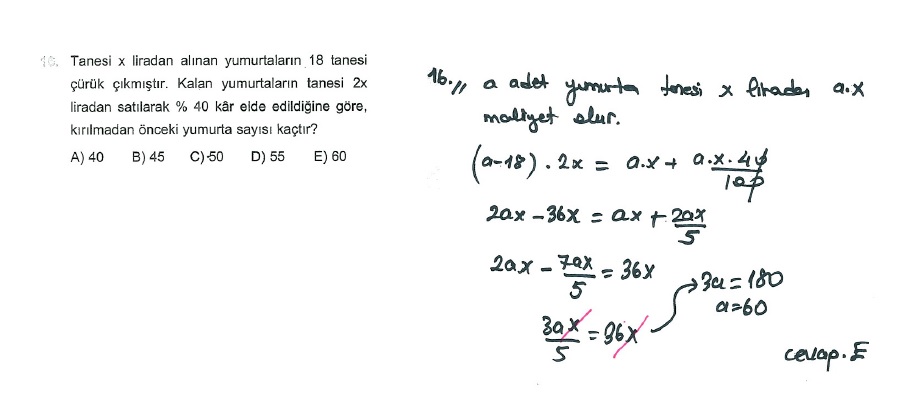 16. Tanesi x liradan alınan yumurtaların 18 tanesi
çürük çıkmıştır. Kalan yumurtaların tanesi 2x
liradan satılarak % 40 kâr elde edildiğine göre,
kırılmadan önceki yumurta sayısı kaçtır?
A) 40 B) 45 C) 50 D) 55 E) 60
16.,, a adet yumurta tanesi x liradan a.x
maliyet olur.
(a-18) . 2x = a.x + a.x.40/100
2ax - 36x = ax + 2ax/5
2ax - 7ax/5 = 36x
3ax/5 = 36x
3a = 180
a=60
cevap. E